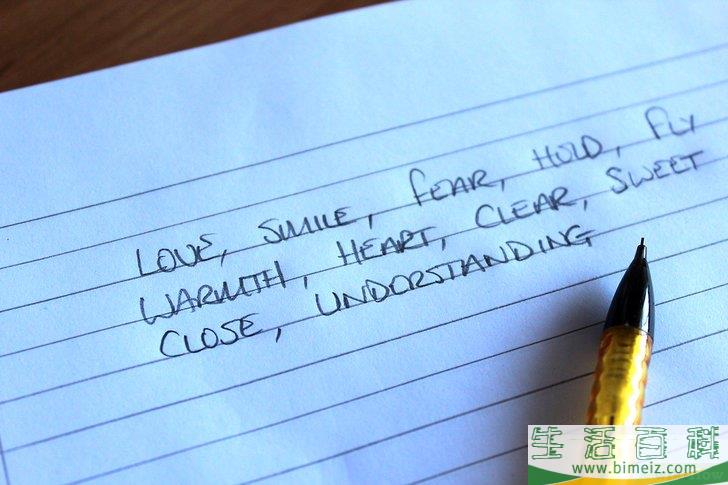 LOVE, SMILE, FEAR, HOLD, FLY
WARMTH, HEART, CLEAR, SWEET
CLOSE, UNDERSTANDING
生活百科
www.bimeiz.com